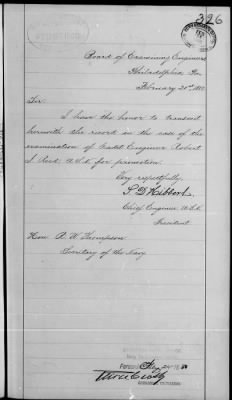 326
Board of Examining Engineers
Philadelphia Pa
February 20th
Sir:
I have the honor to transmit
herewith the record in the case of the
examination of Cadet Engineer Robert
S. U.S.N. for promotion.
Very respectfully,
S. D. Hibbert
Chief Engineer U.S.N.
President
Hon. R. W. Thompson
Secretary of the Navy
Forwarded